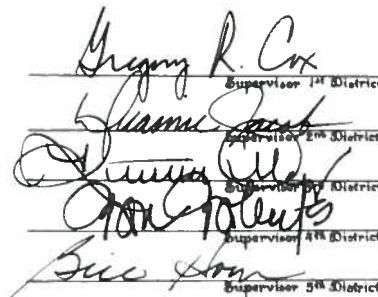 Gregory R. Cox
Supervisor 1st District
Dianne Jacob
Supervisor 2nd District
Ron Roberts
Supervisor 4th District
Bill Horn
Supervisor 5th District